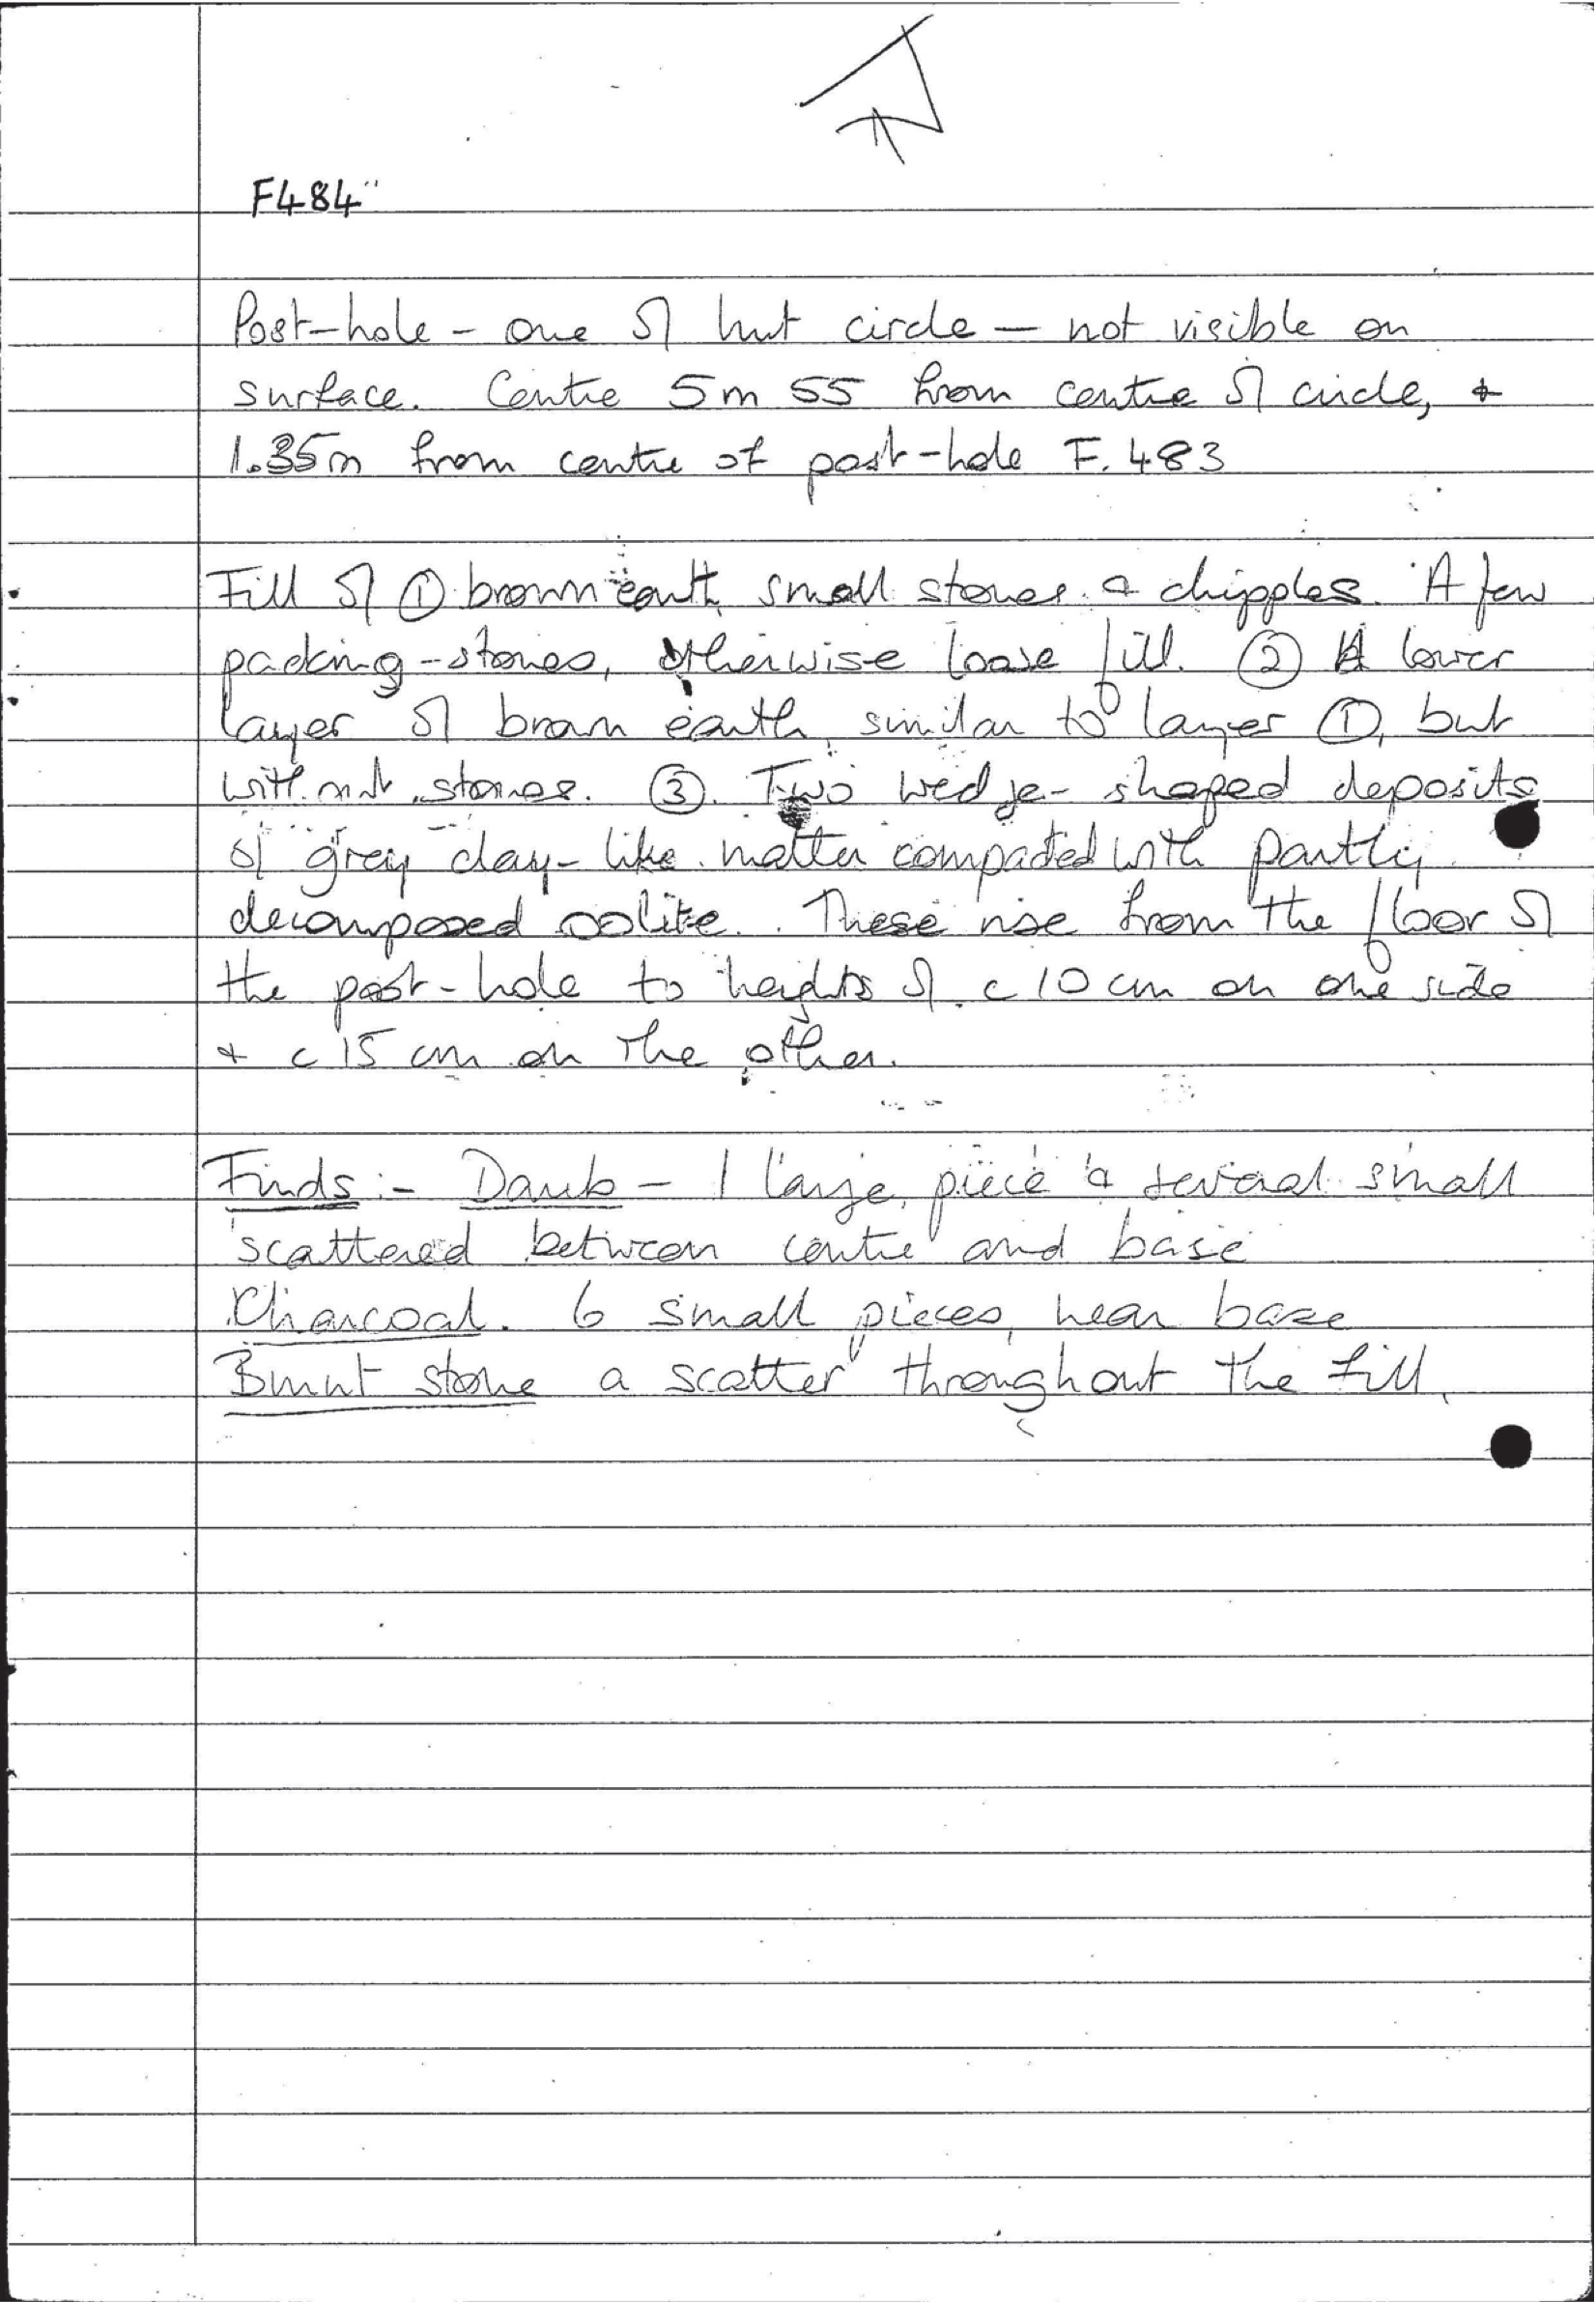 F484
Post-hole - one of hut circle — not visible on
surface. Centre 5m 55 from centre of circle, &
1.35m from centre of post-hole F. 483
Fill of ① brown earth, small stones & chipples. A few
packing-stones, otherwise loose fill. ② A lower
layer of brown earth, similar to layer ①, but
without stones. ③. Two wedge-shaped deposits
of grey clay-like matter compacted with partly
decomposed oolite. These rise from the floor of
the post-hole to heights of c 10 cm on one side
& c 15 cm on the other.
Finds:- Daub - 1 large piece & several small
scattered between centre and base
Charcoal. 6 small pieces, near base
Burnt stone a scatter throughout the fill.